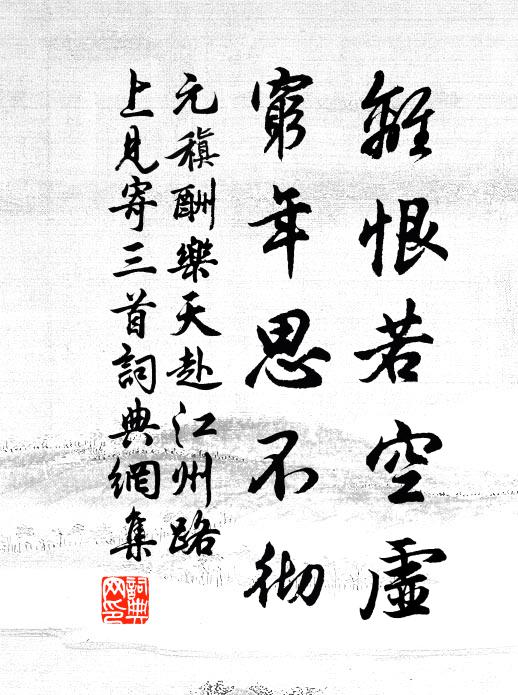 離恨若空虛
窮年思不彻
元稹酬樂天赴江州路
上見寄三首詞典網集
詞典
网印